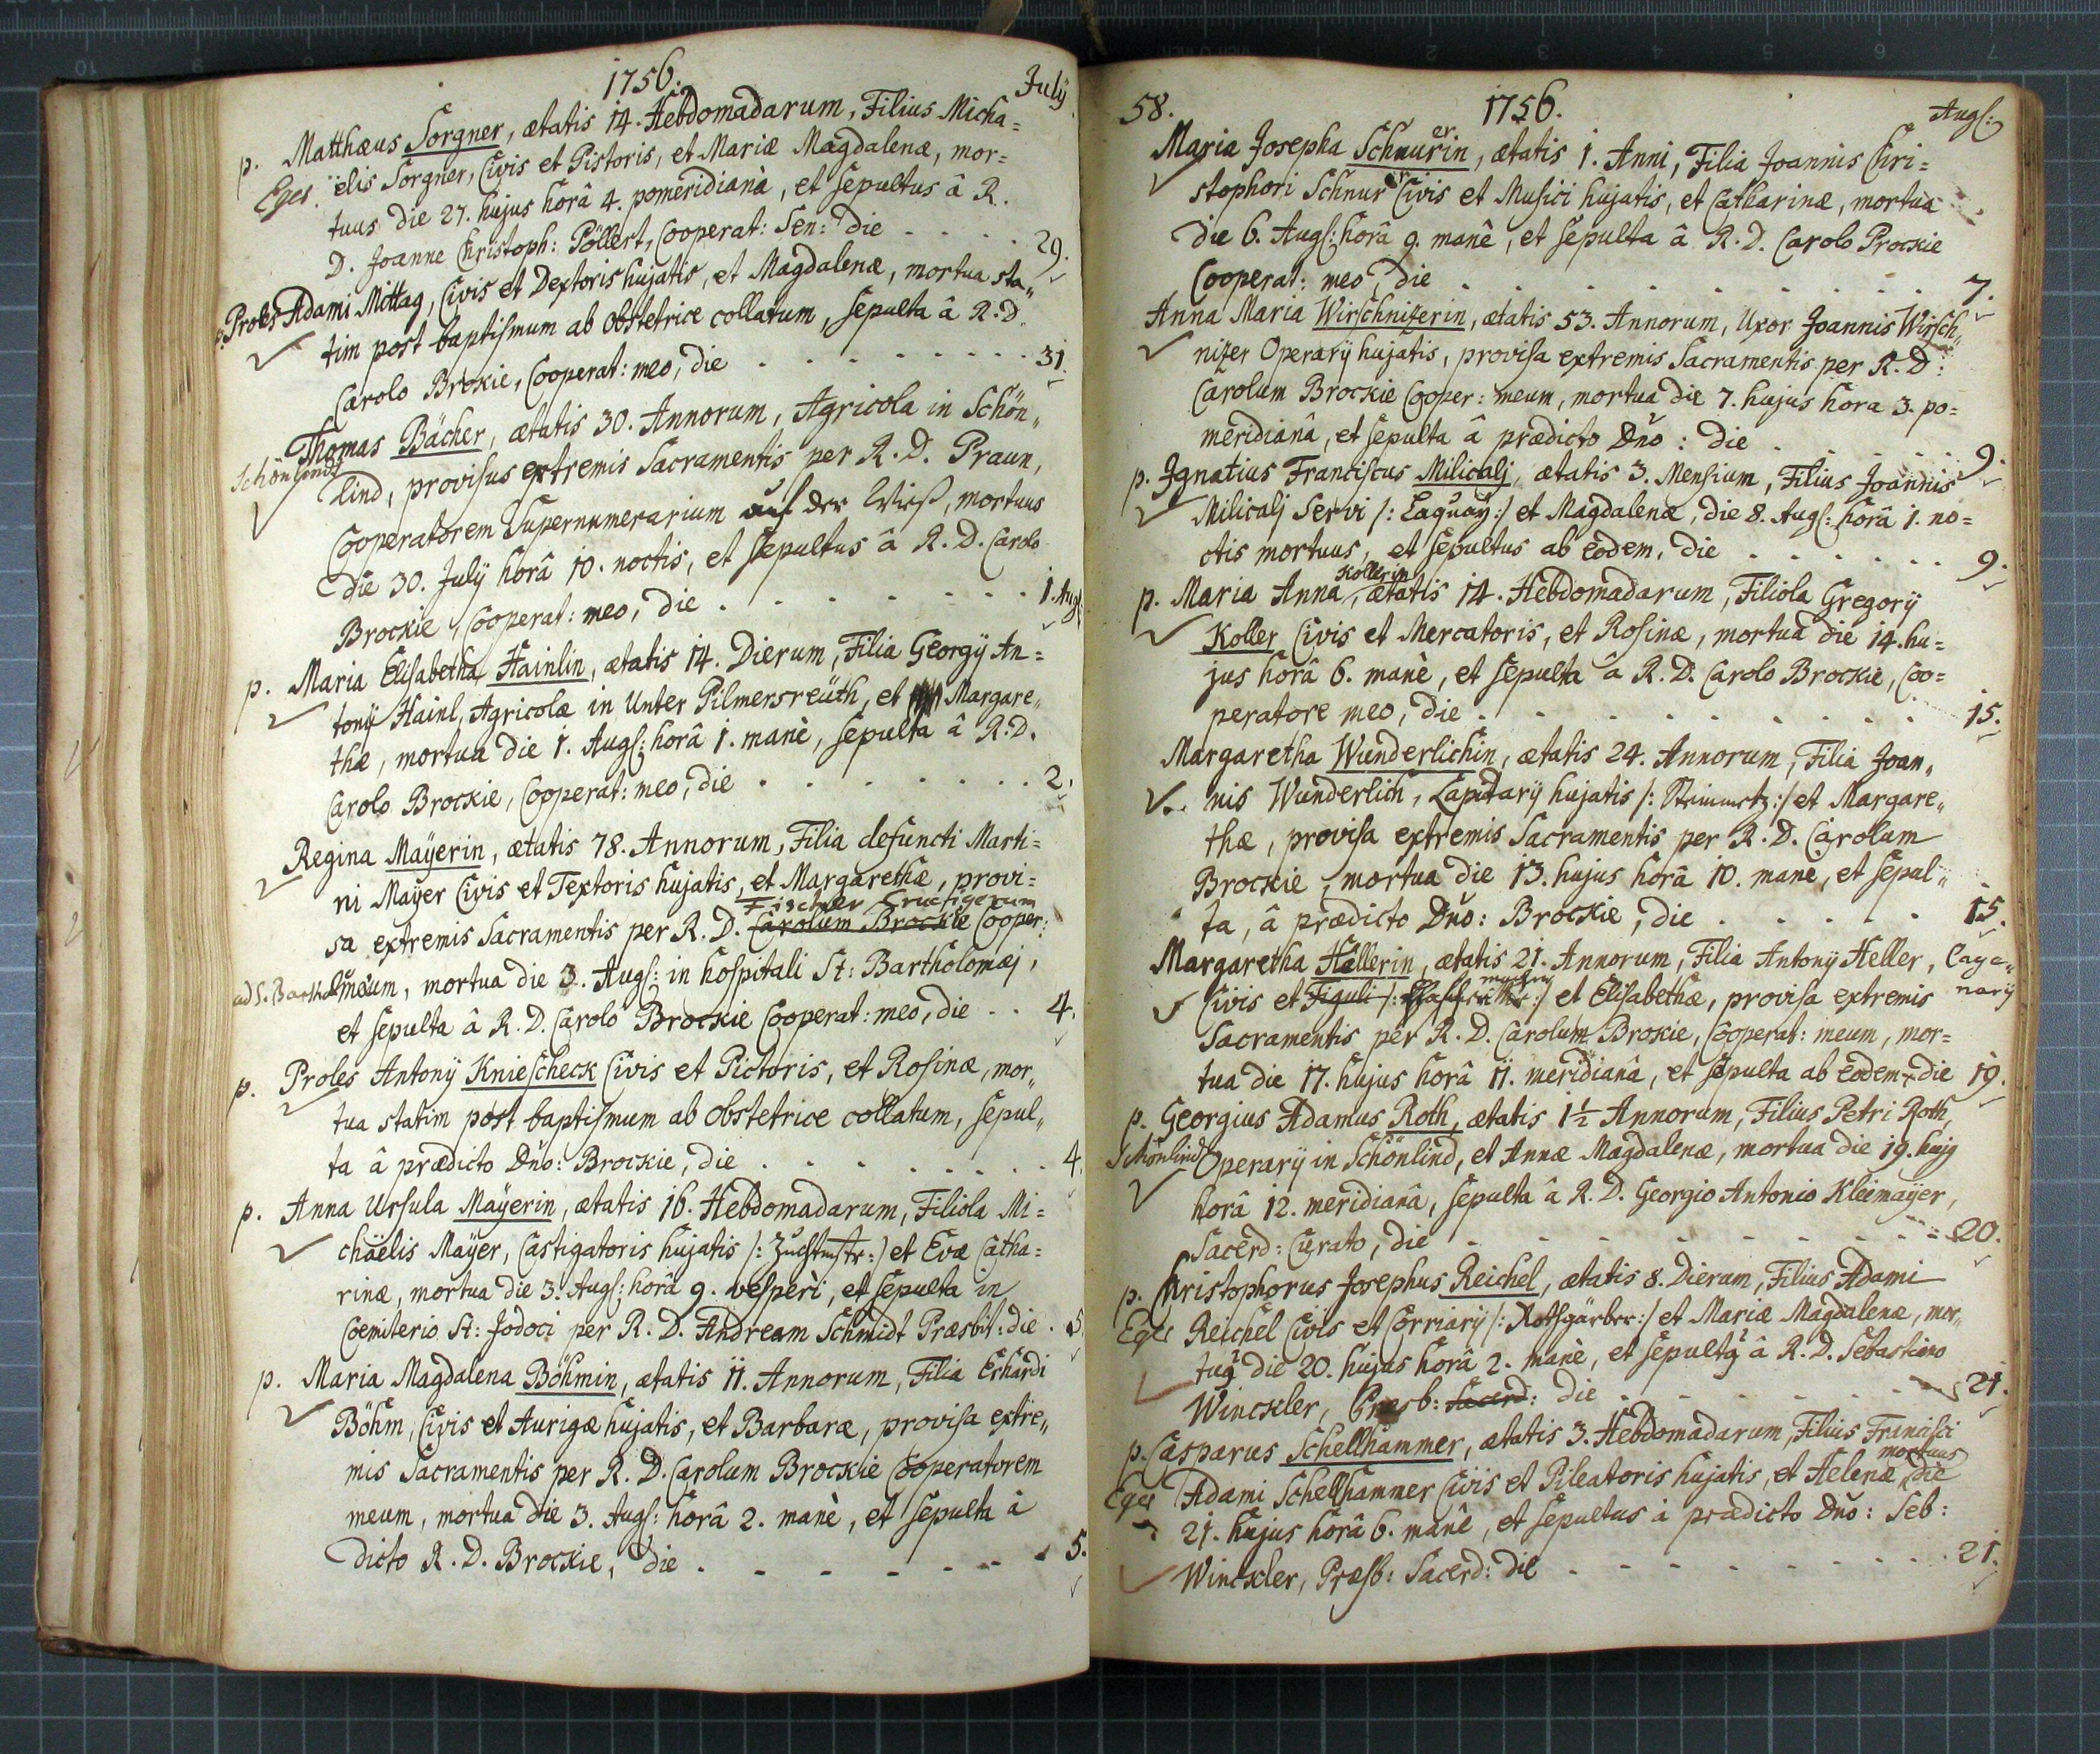 1756. July
p. Matthæus Sorgner, ætatis 14. Hebdomadarum, Filius Micha=
Eger. elis Sorgner, Civis et Pistoris, et Mariæ Magdalenæ, mor=
tuus die 27. hujus horâ 4. pomeridianâ, et sepultus â R.
D. Joanne Christoph: Pöllert, Cooperat: Sen: die . . . . . 29.
p. Proles Adami Mittag, Civis et Dextoris hujatis, et Magdalenæ, mortua sta„
tim post baptismum ab obstetrice collatum, sepulta â R. D.
Carolo Brokie, Cooperat: meo, die . . . . . . . . . 31.
Thomas Bächer, ætatis 30. Annorum, Agricola in Schön„
Schönlind lind, provisus extremis Sacramentis per R. D. Praun,
Cooperatorem Supernumerarium auf der Wieß, mortuus
die 30. Julÿ horâ 10. noctis, et sepultus â R. D. Carolo
Brockie, Cooperat: meo, die . . . . . . . . 1. Aug:
p. Maria Elisabetha Hainlin, ætatis 14. Dierum, Filia Georgÿ An=
tonÿ Hainl, Agricolæ in Unter Pilmersreüth, et Margare„
thæ, mortua die 1. Aug: horâ 1. manè, sepulta â R. D.
Carolo Brockie, Cooperat: meo, die . . . . . . . . 2.
Regina Maÿerin, ætatis 78. Annorum, Filia defuncti Marti=
ni Maÿer Civis et Textoris hujatis, et Margarethæ, provi=
Fischer Crucigerum
sa extremis Sacramentis per R. D. Carolum Brockie Cooper:
ad S. Barthol meum, mortua die 3. Aug: in hospitali St: Bartholomæj,
et sepulta â R. D. Carolo Brockie Cooperat: meo, die . . 4.
p. Proles Antonÿ Kniescheck Civis et Pictoris, et Rosinæ, mor„
tua statim post baptismum ab obstetrice collatum, sepul„
ta â prædicto Dño: Brockie, die . . . . . . . . . 4.
p. Anna Ursula Maÿerin, ætatis 16. Hebdomadarum, Filiola Mi=
chäelis Maÿer, Castigatoris hujatis /: Zuchtmstr: / et Evæ Catha=
rinæ, mortua die 3. Aug: horâ 9. vesperi, et sepulta in
Coemiterio St: Jodoci per R. D. Andream Schmidt Præsbit: die . 5.
p. Maria Magdalena Böhmin, ætatis 11. Annorum, Filia Erhardi
Böhm, Civis et Aurigæ hujatis, et Barbaræ, provisa extre„
mis Sacramentis per R. D. Carolum Brockie Cooperatorem
meum, mortua die 3. Aug: horâ 2. manè, et sepulta â
dicto R. D. Brockie, die . - - - - - . 5.
58. 1756. Aug:
er
Maria Josepha Schnurin, ætatis 1. Anni, Filia Joannis Chri=
stophori Schnurer Civis et Musici hujatis, et Catharinæ, mortua
die 6. Aug: horâ 9. manê, et sepulta â R. D. Carolo Prockie
Cooperat: meo, die . . . . . . . . . . 7.
Anna Maria Wirschnizerin, ætatis 53. Annorum, Uxor Joannis Wirsch„
nizer Operarÿ hujatis, provisa extremis Sacramentis per R. D:
Carolum Brockie Cooper: meum, mortua die 7. hujus hora 3. po=
meridianâ, et sepulta â prædicto Dño: die . . . . . 9.
p. Ignatius Franciscus Milicalj, ætatis 3. Mensium, Filius Joannis
Milicalj Servi /: Laquaÿ :/ et Magdalenæ, die 8. Aug: horâ 1. no=
ctis mortuus, et sepultus ab eodem, die . . . . . . . 9.
Kollerin
p. Maria Anna, ætatis 14. Hebdomadarum, Filiola Gregorÿ
Koller Civis et Mercatoris, et Rosinæ, mortua die 14. hu=
jus horâ 6. manè, et sepulta â R. D. Carolo Brockie, Coo=
peratore meo, die . . . . . . . . . . . 15.
Margaretha Wunderlichin, ætatis 24. Annorum, Filia Joan„
nis Wunderlich, Lapidarÿ hujatis /: Steinmetz :/ et Margare„
thæ, provisa extremis Sacramentis per R. D. Carolum
Brockie, mortua die 13. hujus horâ 10. manè, et sepul„
ta, â prædicto Dño: Brockie, die . . . . . . 15.
Margaretha Hellerin, ætatis 21. Annorum, Filia Antonÿ Heller, Lage„
narÿ
Civis et Figuli /: :/ et Elisabethæ, provisa extremis
Sacramentis per R. D. Carolum Brokie, Cooperat: meum, mor=
tua die 17. hujus horâ 11. meridianâ, et sepulta ab eodem die 19.
p. Georgius Adamus Roth, ætatis 1½ Annorum, Filius Petri Roth,
Schönlind Operarÿ in Schönlind, et Annæ Magdalenæ, mortua die 19. hujg
horâ 12. meridianâ, sepulta â R. D. Georgio Antonio Kleimaÿer,
Sacerd: Curato, die - - - - - - - - 20.
p. Christophorus Josephus Reichel, ætatis 8. Dierum, Filius Adami
Eger Reichel Civis et Corriarÿ /: Rothgärber :/ et Mariæ Magdalenæ, mor„
tuq die 20. hujus horâ 2. manè, et sepultq â R. D. Sebastiano
Winckler, Presb: Sacerd: die . . . - - - 21.
p. Casparus Schellhammer, ætatis 3. Hebdomadarum, Filius Francisci
mortuus
Eger Adami Schellhammer Civis et Pileatoris hujatis, et Helenæ, die
21. hujus horâ 6. manê, et sepultus â prædicto Dño: Seb:
Winckler, Præsb: Sacerd: die . . . . . . . . 21.